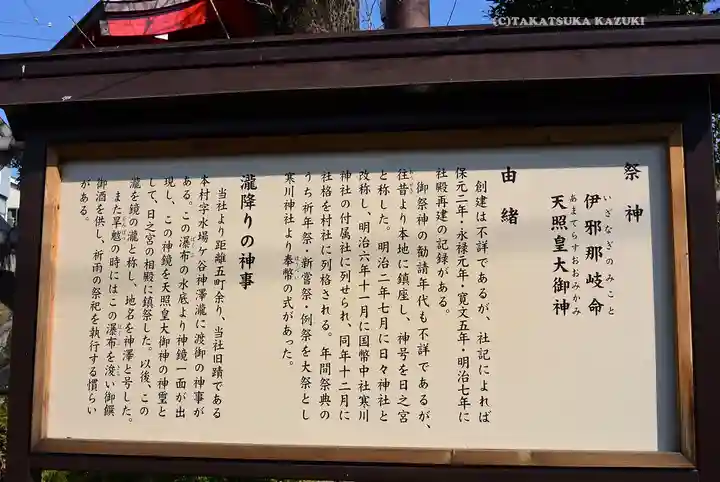 (C)TAKATSUKA KAZUKI
祭神
伊邪那岐命
いざなぎのみこと
天照皇大御神
あまてらすおおみかみ
由緒
創建は不詳であるが、社記によれば
保元二年・永禄元年・寛文五年・明治七年に
社殿再建の記録がある。
御祭神の勧請年代も不詳であるが、
往昔より本地に鎮座し、神号を日之宮
と称した。明治二年七月に日々神社と
改称し、明治六年十一月に国幣中社寒川
神社の付属社に列せられ、同年十二月に
社格を村社に列格される。年間祭典の
うち祈年祭・新嘗祭・例祭を大祭とし
寒川神社より奉幣の式があった。
瀧降りの神事
当社より距離五町余り、当社旧蹟である
本村字水場ケ谷神澤瀧に渡御の神事が
ある。この瀑布の水底より神鏡一面が出
現し、この神鏡を天照皇大御神の神霊と
して、日之宮の相殿に鎮祭した。以後、この
瀧を鏡の瀧と称し、地名を神澤と号した。
また旱魃の時にはこの瀑布を浚い御饌
御酒を供し、祈雨の祭祀を執行する慣らい
がある。